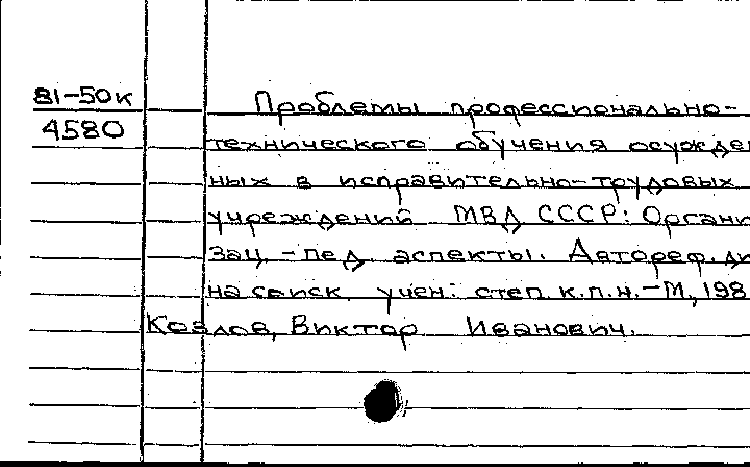 81-50к
4580
Проблемы профессионально-
технического обучения осужден
ных в исправительно-трудовых
учреждений МВД СССР: Органи
зац.-пед. аспекты. Автореф. ди
на соиск. учен. степ. к.п.н.-М., 198
Козлов, Виктор Иванович.